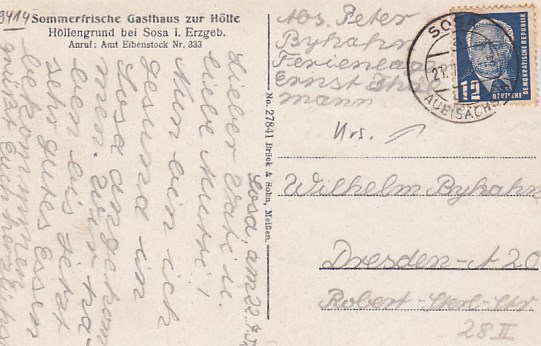 9414
Sommerfrische Gasthaus zur Hölle
Höllengrund bei Sosa i. Erzgeb.
Anruf: Amt Eibenstock Nr. 333
Sosa, am 22.7.
Lieber Vati u.
liebe Mutti!
Nun bin ich
gesund in
Sosa angekom
men. Wir ha-
ben bis jetzt
sehr gutes Essen
bekommen.
Euch herzlichst
No. 27841 Brück & Sohn, Meißen.
Abs. Peter
Byhahn
Ferienlag
Ernst Thäl
mann
SOSA
AUE (SACHS)
12
DEUTSCHE
DEMOKRATISCHE REPUBLIK
Wilhelm Byhahn
Dresden-A 20
Robert-Sterl-Str
28 II